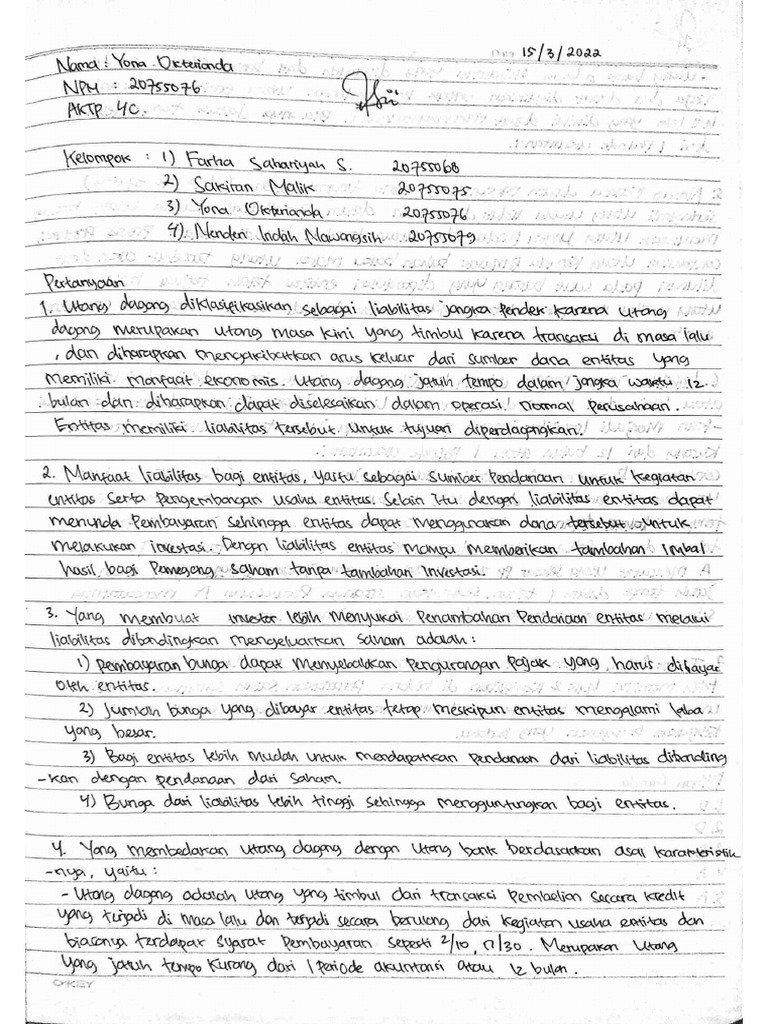 15/3/2022
Nama : Yona Okterianda
NPM : 20755076
AKTP 4C
Kelompok : 1) Farha Sahariyah S. 20755068
2) Sakitan Malik 20755075
3) Yona Okterianda 20755076
4) Nenden Indah Mawangsih 20755079
Pertanyaan
1. Utang dagang diklasifikasikan sebagai liabilitas jangka pendek karena utang
dagang merupakan utang masa kini yang timbul karena transaksi di masa lalu
, dan diharapkan mengakibatkan arus keluar dari sumber dana entitas yang
memiliki manfaat ekonomis. Utang dagang jatuh tempo dalam jangka waktu 12
bulan dan diharapkan dapat diselesaikan dalam operasi normal perusahaan.
Entitas memiliki liabilitas tersebut untuk tujuan diperdagangkan.
2. Manfaat liabilitas bagi entitas, yaitu sebagai sumber pendanaan untuk kegiatan
entitas serta pengembangan usaha entitas. Selain itu dengan liabilitas entitas dapat
menunda pembayaran sehingga entitas dapat menggunakan dana tersebut untuk
melakukan investasi. Dengan liabilitas entitas mampu memberikan tambahan imbal
hasil bagi pemegang saham tanpa tambahan investasi.
3. Yang membuat investor lebih menyukai penambahan pendanaan entitas melalui
liabilitas dibandingkan mengeluarkan saham adalah :
1) pembayaran bunga dapat menyebabkan pengurangan pajak yang harus dibayar
oleh entitas.
2) Jumlah bunga yang dibayar entitas tetap meskipun entitas mengalami laba
yang besar.
3) Bagi entitas lebih mudah untuk mendapatkan pendanaan dari liabilitas dibanding
-kan dengan pendanaan dari saham.
4) Bunga dari liabilitas lebih tinggi sehingga menguntungkan bagi entitas.
4. Yang membedakan utang dagang dengan utang bank berdasarkan asal karakteristik
-nya, yaitu :
- Utang dagang adalah utang yang timbul dari transaksi pembelian secara kredit
yang terjadi di masa lalu dan terjadi secara berulang dari kegiatan usaha entitas dan
biasanya terdapat syarat pembayaran seperti 2/10, n/30. Merupakan utang
yang jatuh tempo kurang dari 1 periode akuntansi atau 12 bulan.